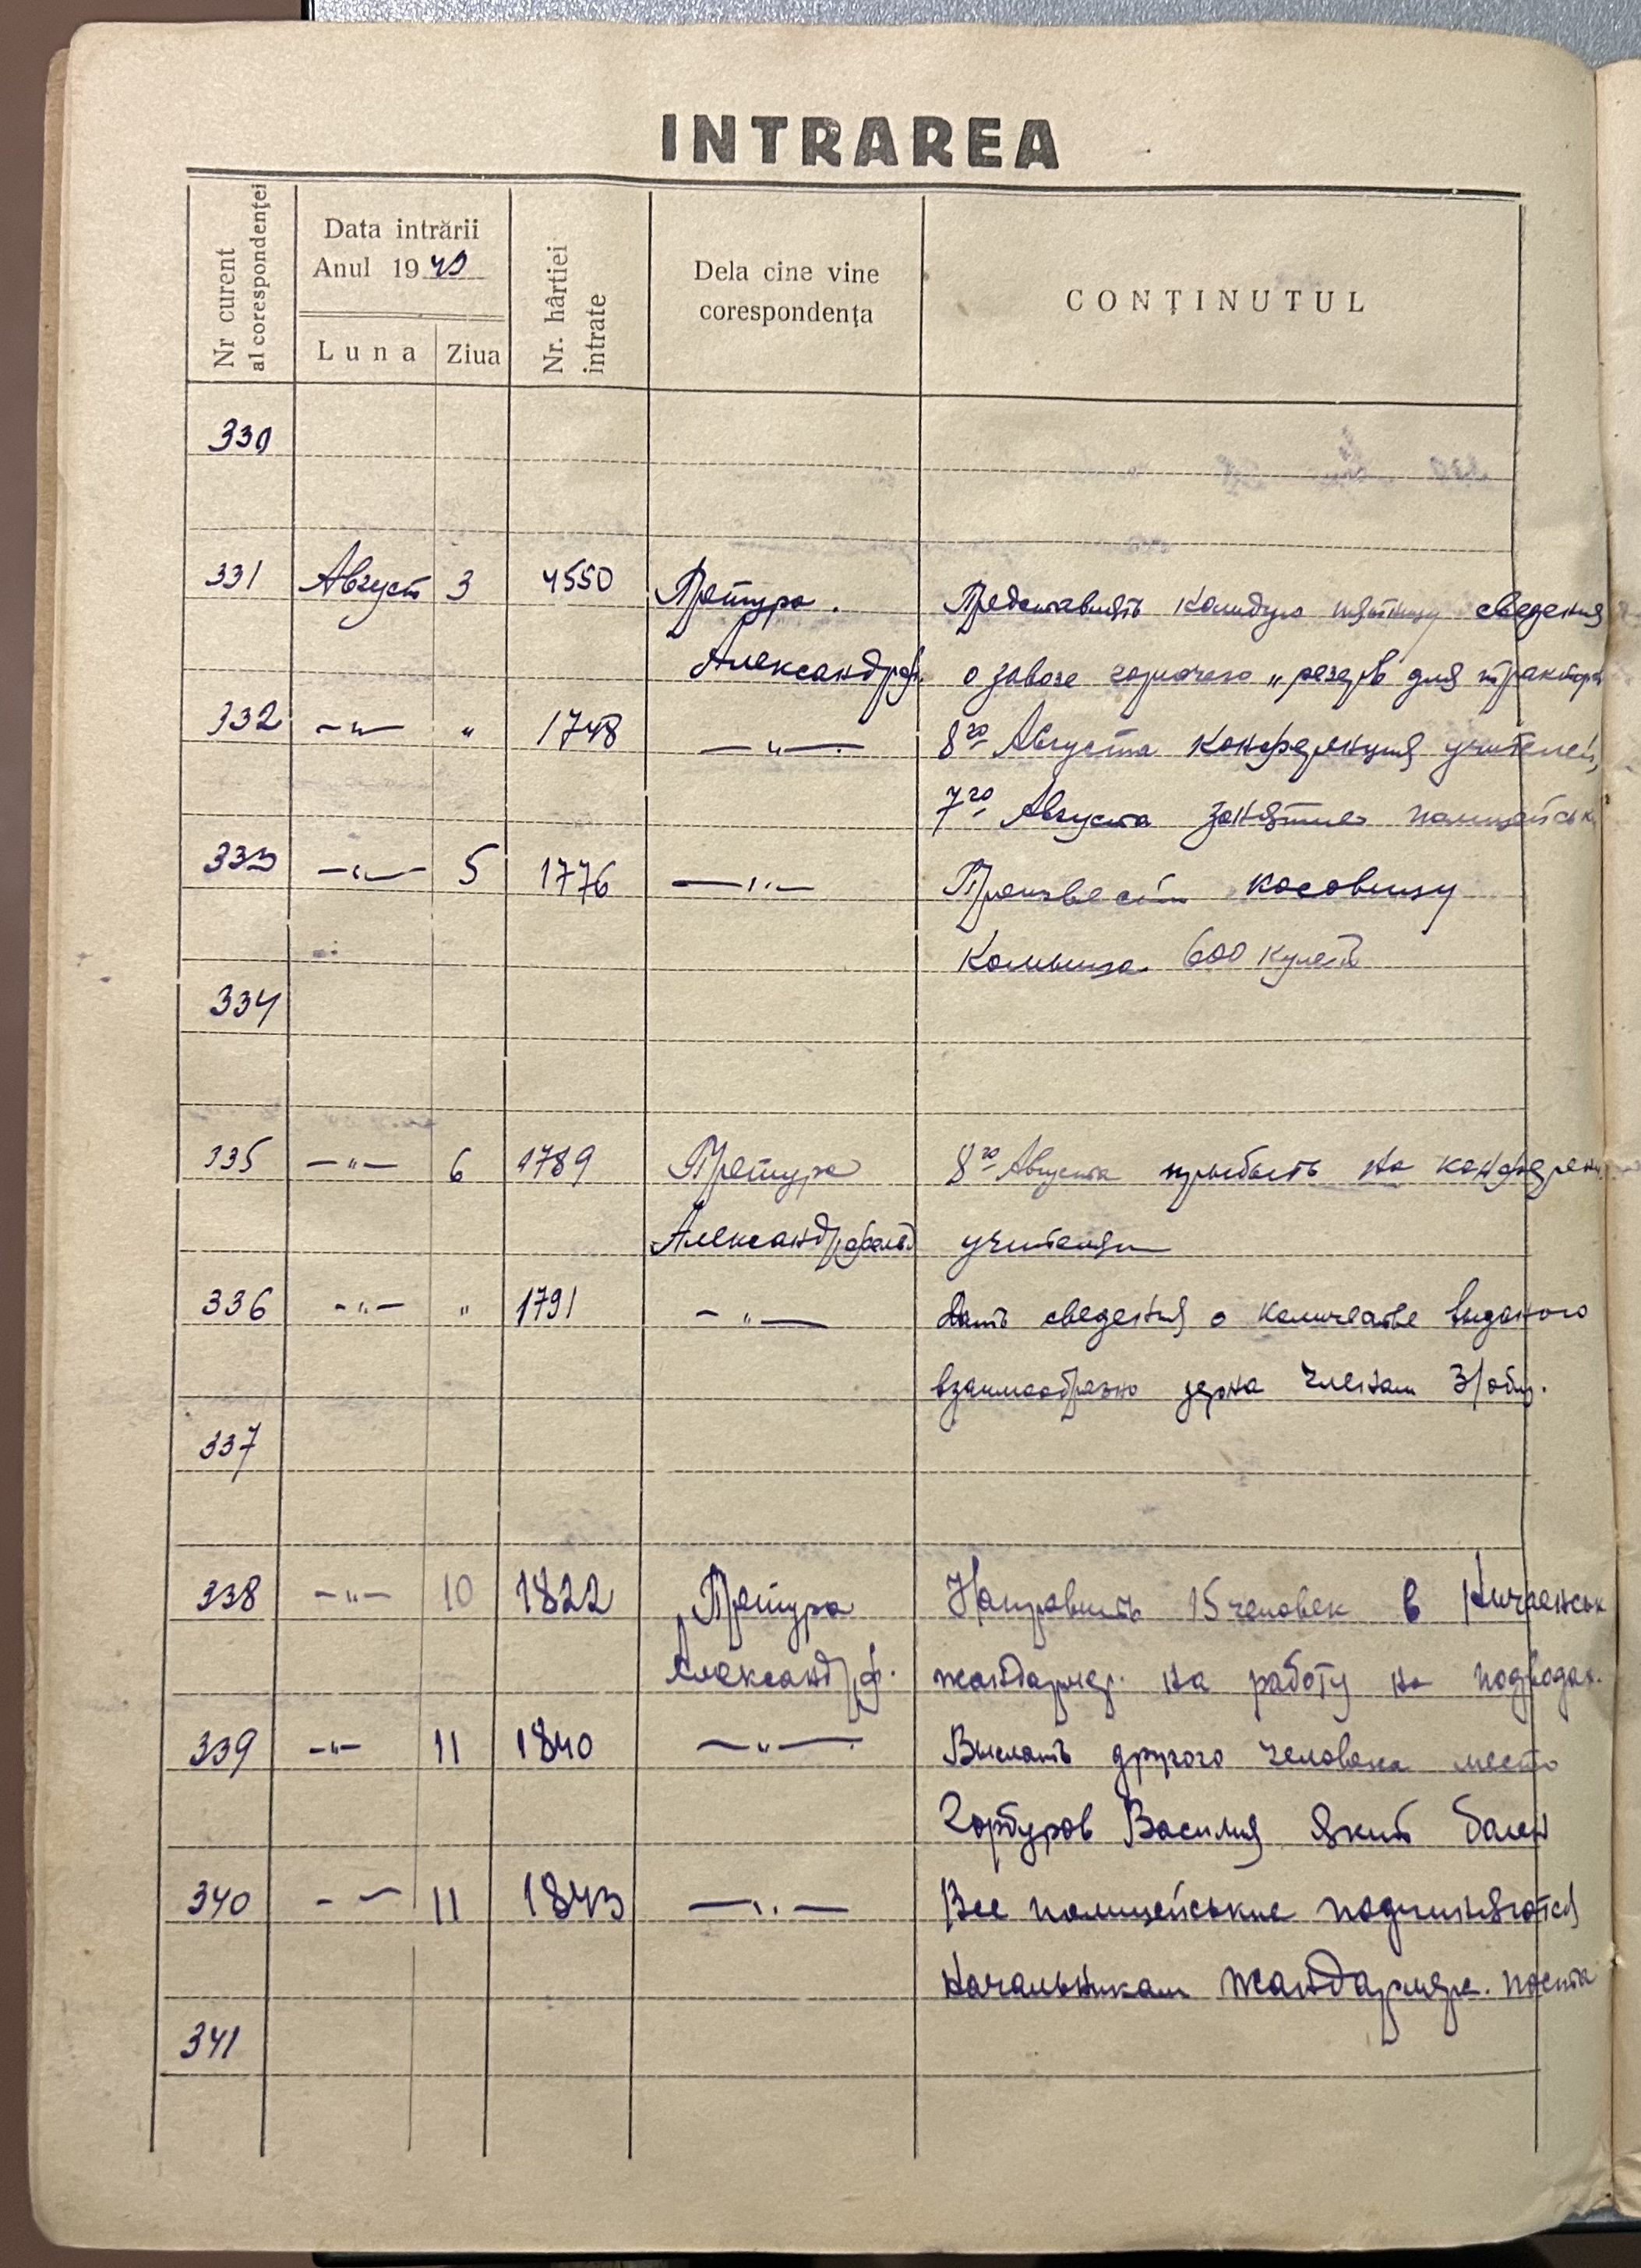 INTRAREA
Nr curent al corespondenței
Data intrării
Anul 1943
Luna
Ziua
Nr. hârtiei intrate
Dela cine vine
corespondența
CONȚINUTUL
330
331 Август 3 4550 Претура. Представить каждую пятницу сведения
Александрф. о завозе горючего „резерв для трактор
332 —"— " 1748 —"— 8го Августа конференция учителей,
7го Августа занятие полицейськ
333 —"— 5 1776 —"— Произвести косовицу
Камыша 600 кулей
334
335 —"— 6 1789 Претура 8го Августа прыбыть на конферен
Александрфельд учителям
336 —"— " 1791 —"— Дать сведения о количестве выданого
взаимообразно зерна членам З/общ.
337
338 —"— 10 1822 Претура Направить 15 человек в
Александрф. жандармер. на работу на подводах.
339 —"— 11 1840 —"— Выслать другого человека место
Василия який болен
340 —"— 11 1843 —"— Все полицейськие подчиняются
Начальникам Жандармер. поста
341